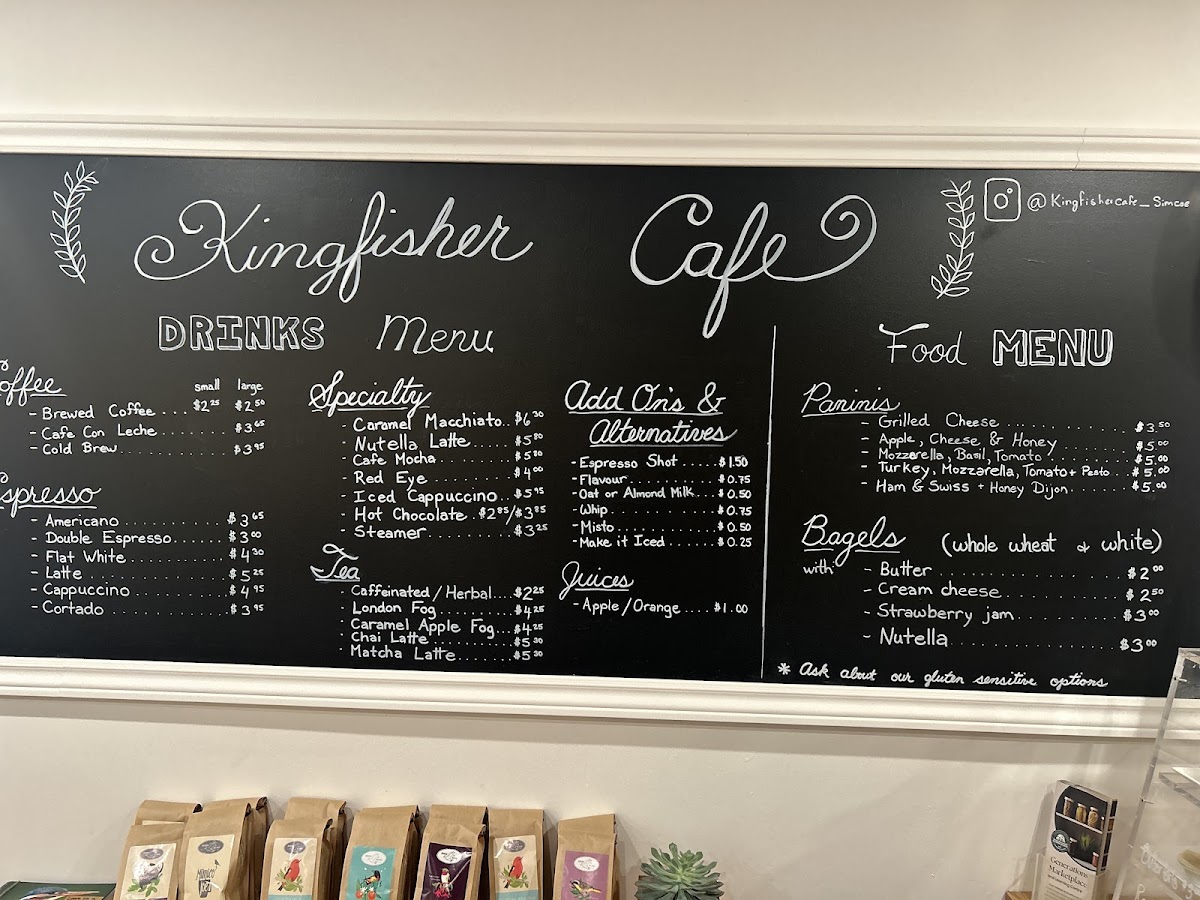 Kingfisher Cafe
@Kingfishercafe_Simcoe
DRINKS Menu
offee small large
- Brewed Coffee ... $2.25 $2.50
- Cafe Con Leche ........ $3.65
- Cold Brew ............. $3.95
spresso
- Americano ............ $3.65
- Double Espresso ...... $3.00
- Flat White ........... $4.30
- Latte ................ $5.25
- Cappuccino ........... $4.95
- Cortado .............. $3.95
Specialty
- Caramel Macchiato .. $6.30
- Nutella Latte ...... $5.80
- Cafe Mocha ......... $5.80
- Red Eye ............ $4.00
- Iced Cappuccino .... $5.95
- Hot Chocolate .. $2.85/$3.85
- Steamer ............ $3.25
Tea
- Caffeinated/Herbal ... $2.25
- London Fog ........... $4.25
- Caramel Apple Fog ... $4.25
- Chai Latte ........... $5.30
- Matcha Latte ......... $5.30
Add On's &
Alternatives
- Espresso Shot ..... $1.50
- Flavour ........... $0.75
- Oat or Almond Milk ... $0.50
- Whip .............. $0.75
- Misto ............. $0.50
- Make it Iced ...... $0.25
Juices
- Apple/Orange .... $1.00
Food MENU
Paninis
- Grilled Cheese ............ $3.50
- Apple, Cheese & Honey ..... $5.00
- Mozzarella, Basil, Tomato ..... $5.00
- Turkey, Mozzarella, Tomato + Pesto .. $5.00
- Ham & Swiss + Honey Dijon ....... $5.00
Bagels (whole wheat & white)
with
- Butter ............ $2.00
- Cream cheese ...... $2.50
- Strawberry jam .... $3.00
- Nutella ........... $3.00
* Ask about our gluten sensitive options
Generations
Marketplace